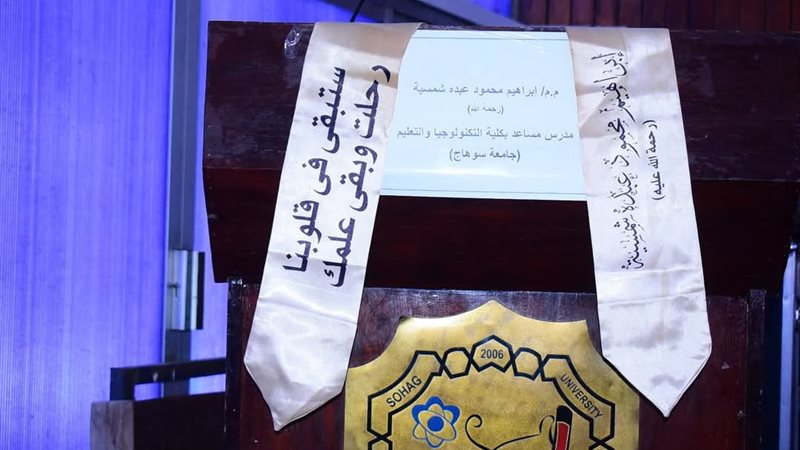 رحلت وبقى علمك
ستبقى في قلوبنا
م.م/ إبراهيم محمود عبده شمسية
(رحمة الله)
مدرس مساعد بكلية التكنولوجيا والتعليم
(جامعة سوهاج)
إبراهيم محمود عبده شمسية
(رحمة الله عليه)
2006
SOHAG
UNIVERSITY